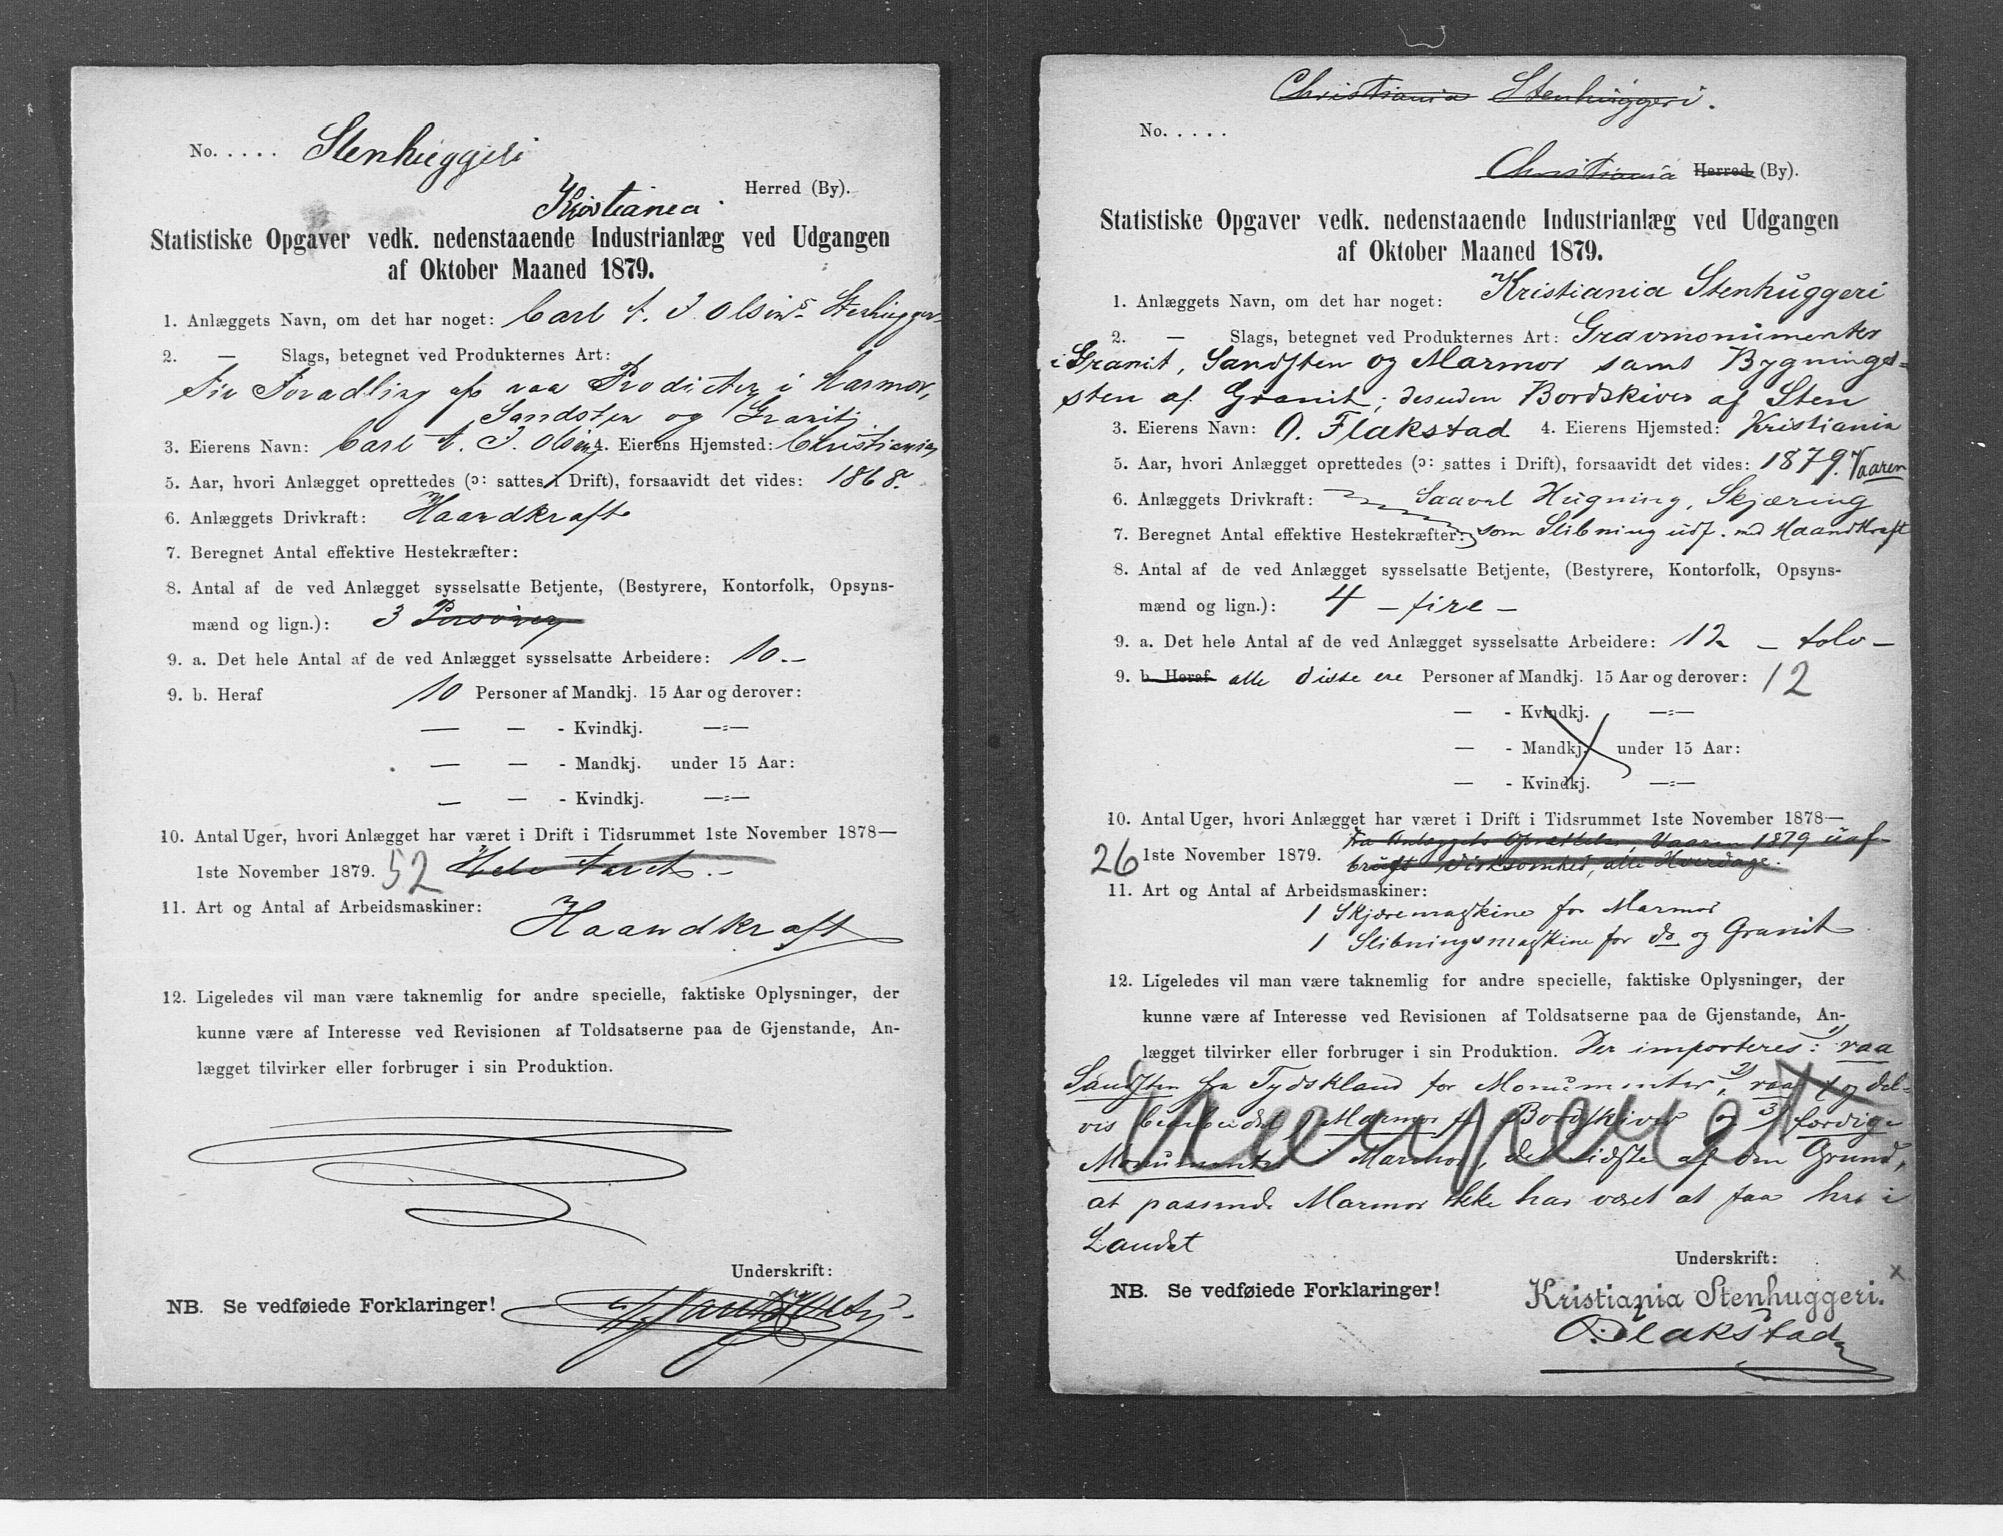 No. . . . . Stenhuggeri
Kristiania. Herred (By).
Statistiske Opgaver vedk. nedenstaaende Industrianlæg ved Udgangen
af Oktober Maaned 1879.
1. Anlæggets Navn, om det har noget: Carl A. J. Olsens Stenhugger
2. — Slags, betegnet ved Produkternes Art:
For Foradling af raa Producter i Marmor,
Sandsten og Granit.
3. Eierens Navn: Carl A. J. Olsen 4. Eierens Hjemsted: Christiania
5. Aar, hvori Anlægget oprettedes (ɔ: sattes i Drift), forsaavidt det vides: 1868.
6. Anlæggets Drivkraft: Haandkraft
7. Beregnet Antal effektive Hestekræfter:
8. Antal af de ved Anlægget sysselsatte Betjente, (Bestyrere, Kontorfolk, Opsyns-
mænd og lign.): 3 Personer
9. a. Det hele Antal af de ved Anlægget sysselsatte Arbeidere: 10.-
9. b. Heraf 10 Personer af Mandkj. 15 Aar og derover:
— — - Kvindkj. —:—
— — - Mandkj. under 15 Aar:
— — - Kvindkj. —:—
10. Antal Uger, hvori Anlægget har været i Drift i Tidsrummet 1ste November 1878—
1ste November 1879. 52 Hele Aaret.-
11. Art og Antal af Arbeidsmaskiner:
Haandkraft
12. Ligeledes vil man være taknemlig for andre specielle, faktiske Oplysninger, der
kunne være af Interesse ved Revisionen af Toldsatserne paa de Gjenstande, An-
lægget tilvirker eller forbruger i sin Produktion.
Underskrift:
NB. Se vedføiede Forklaringer!
Christiania Stenhuggeri.
No. . . . .
Christiania Herred (By).
Statistiske Opgaver vedk. nedenstaaende Industrianlæg ved Udgangen
af Oktober Maaned 1879.
1. Anlæggets Navn, om det har noget: Kristiania Stenhuggeri
2. — Slags, betegnet ved Produkternes Art: Gravmonumenter
i Granit, Sandsten og Marmor samt Bygnings-
sten af Granit; desuden Bordskiver af Sten
3. Eierens Navn: O. Flakstad 4. Eierens Hjemsted: Kristiania
5. Aar, hvori Anlægget oprettedes (ɔ: sattes i Drift), forsaavidt det vides: 1879. Vaaren
6. Anlæggets Drivkraft: Saavel Hugning, Skjæring
7. Beregnet Antal effektive Hestekræfter: som Slibning udf. med Haandkraft
8. Antal af de ved Anlægget sysselsatte Betjente, (Bestyrere, Kontorfolk, Opsyns-
mænd og lign.): 4 - fire -
9. a. Det hele Antal af de ved Anlægget sysselsatte Arbeidere: 12 - tolv -
9. b. Heraf alle disse ere Personer af Mandkj. 15 Aar og derover: 12
— - Kvindkj. —:—
— - Mandkj. under 15 Aar:
— - Kvindkj. —:—
10. Antal Uger, hvori Anlægget har været i Drift i Tidsrummet 1ste November 1878—
Fra Anlæggets Oprettelse, Vaaren 1879 uaf-
26 1ste November 1879. brudt Virksomhed, alle Hverdage.
11. Art og Antal af Arbeidsmaskiner:
1 Skjæremaskine for Marmor
1 Slibningsmaskine for do og Granit
12. Ligeledes vil man være taknemlig for andre specielle, faktiske Oplysninger, der
kunne være af Interesse ved Revisionen af Toldsatserne paa de Gjenstande, An-
lægget tilvirker eller forbruger i sin Produktion. Der importeres: 1) raa
Sandsten fra Tydskland for Monumenter, 2) raa og del-
vis bearbeidet Marmor til Bordskiver og 3) færdige
Monumenter i Marmor, det sidste af den Grund,
at passende Marmor ikke har været at faa her i
Landet
Underskrift:
NB. Se vedføiede Forklaringer!
Kristiania Stenhuggeri.
O. Flakstad